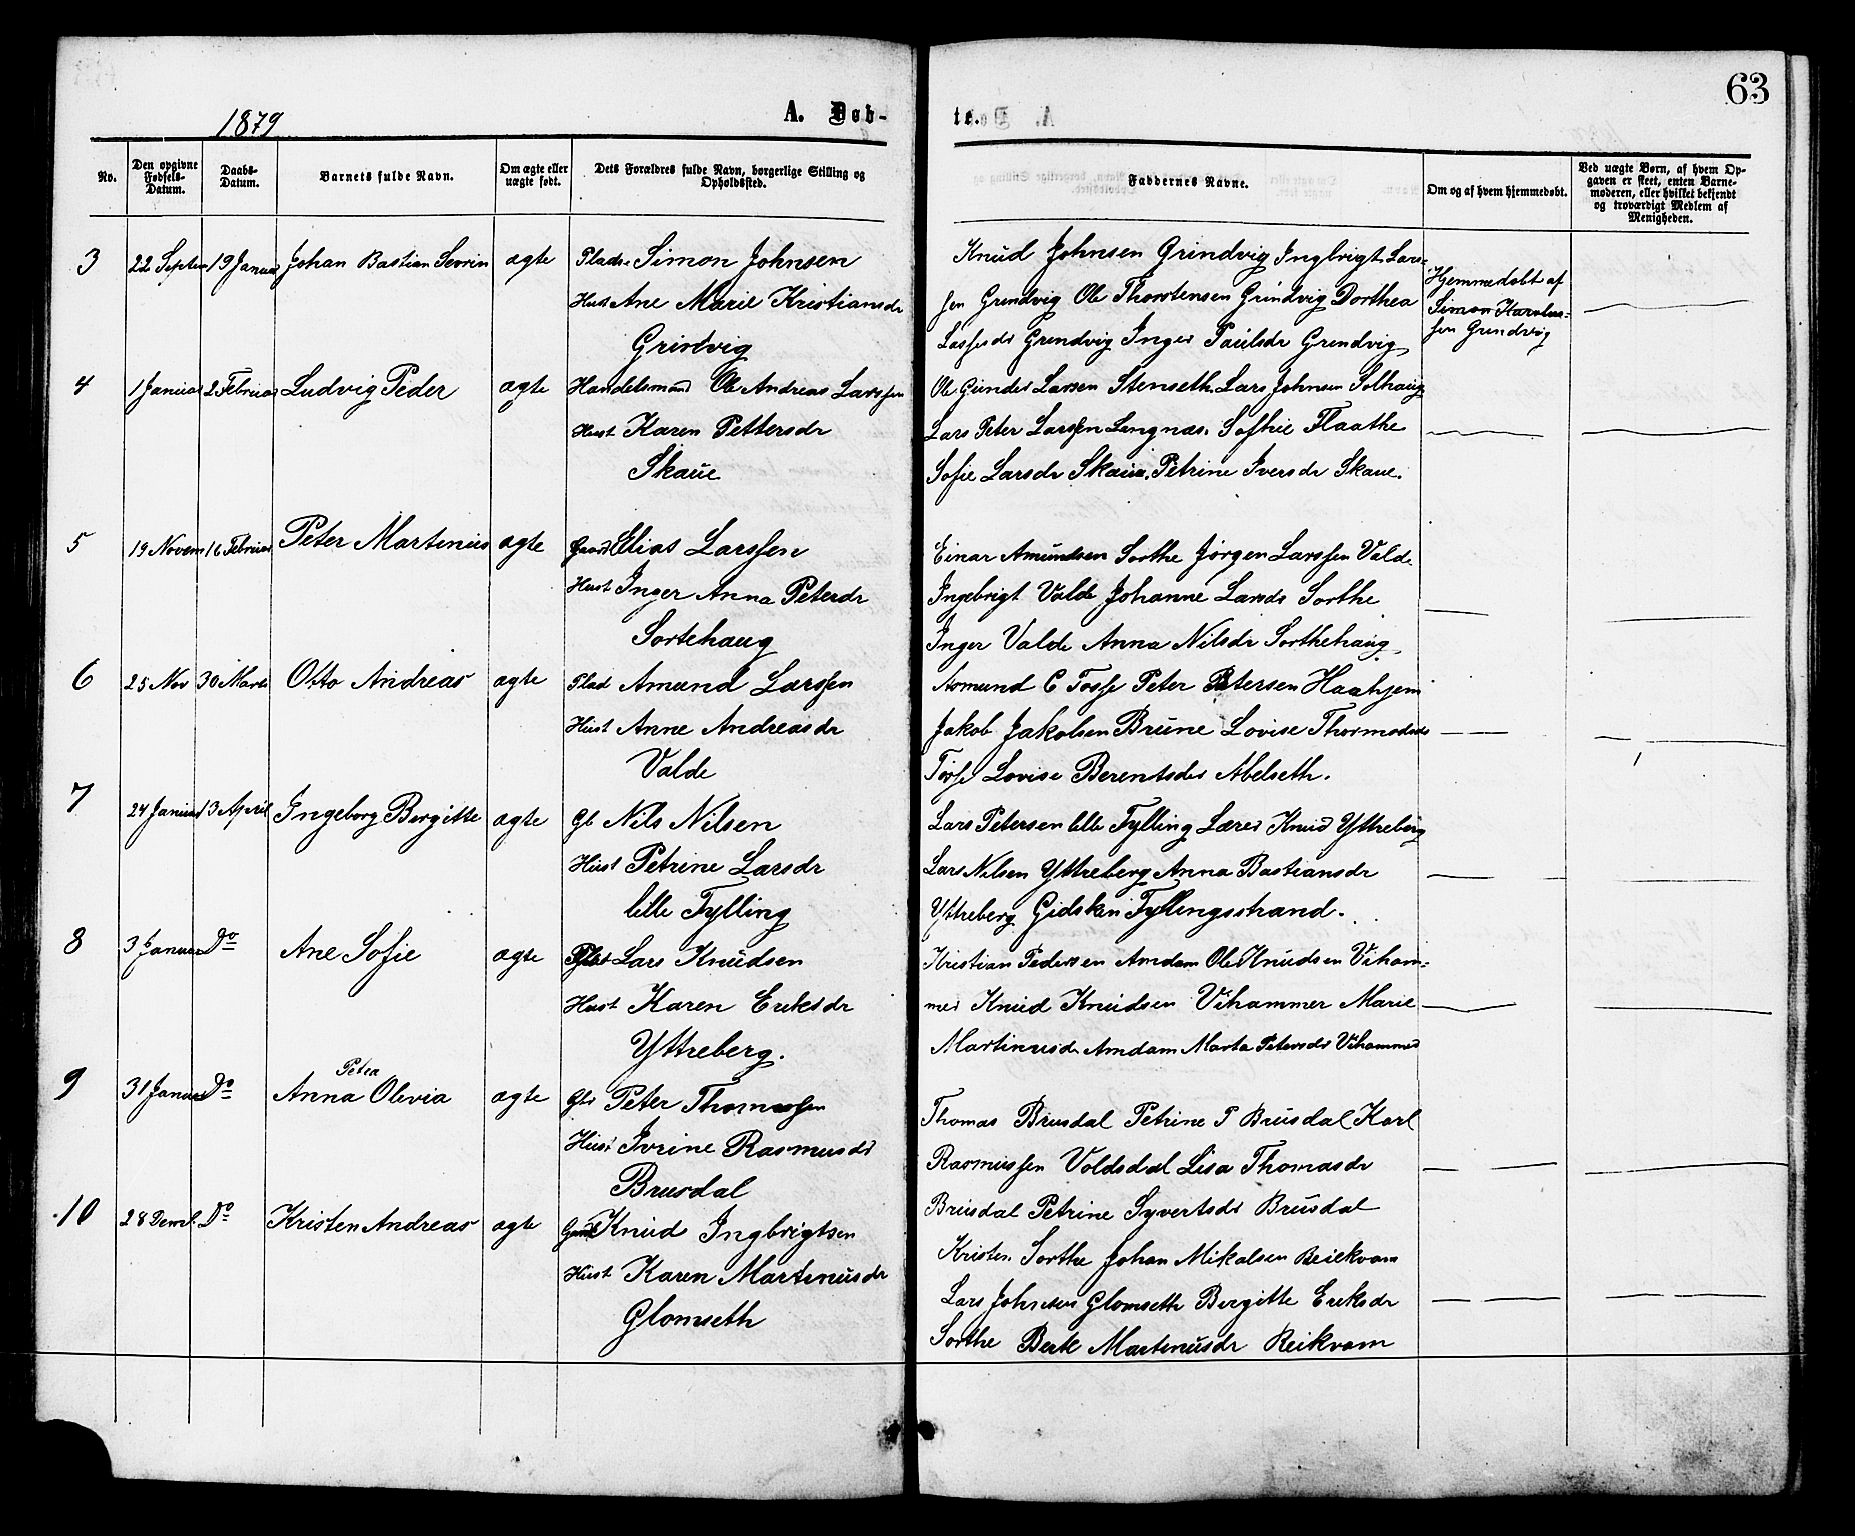 63
1879
A. Døb-
te.
No.
Den opgivne Fødsels-Datum.
Daabs-Datum.
Barnets fulde Navn.
Om ægte eller uægte født.
Dets Forældres fulde Navn, borgerlige Stilling og Opholdssted.
Faddernes Navne.
Om og af hvem hjemmedøbt.
Ved uægte Børn, af hvem Op-
gaven er skeet, enten Barne-
moderen, eller hvilket bekjendt
og troværdigt Medlem af
Menigheden.
3 22 Septem 19 Januar Johan Bastian Sevrin ægte Plads. Simon Johnsen
Hust Ane Marie Kristiansdr
Grindvig
Knud Johnsen Grindvig Ingbrigt Lars-
sen Grindvig Ole Thorstensen Grindvig Dorthea
Lassesdr Grindvig Inger Paulsdr Grindvig
Hjemmedøbt af
Simon
sen Grindvig
4 1 Januar 2 Februar Ludvig Peder ægte Handelsmand Ole Andreas Larssen
Hust Karen Pettersdr
Skaue
Ole Gunder Larsen Stenseth. Lars Johnsen Solhaug
Lars Peter Larssen Langnæs. Sofhie Flaathe
Sofie Larsdr Skaue. Petrine Iversdr Skaue.
5 19 Novem 16 Februar Peter Martinus ægte Gaard Elias Larssen
Hust Inger Anna Petersdr
Sortehaug
Einar Amundsen Sorthe Jørgen Larssen Valde
Ingebrigt Valde Johanne Larsdr Sorthe
Inger Valde Anna Nilsdr Sorthehaug
6 25 Nov 30 Marts Otto Andreas ægte Plad Amund Larssen
Hust Anne Andreasdr
Valde
Asmund C Tosse Peter Petersen Haahjem
Jakob Jakobsen Brune Lovise Thormodsdr
Tosse Lovise Berentsdr Abelseth.
7 24 Januar 13 April Ingeborg Bergitte ægte Gb Nils Nilsen
Hust Petrine Larsdr
lille Fylling
Lars Petersen lille Fylling Lærer Knud Yttreberg
Lars Nilsen Yttreberg Anna Bastiansdr
Yttreberg Gidsken Fyllingsstrand.
8 3 Januar Do Ane Sofie ægte Plad Lars Knudsen
Hust Karen Eriksdr
Yttreberg.
Kristian Pedersen Amdam Ole Knudsen Viham-
mer Knud Knudsen Vihammer Marie
Martinusdr Amdam Marta Petersdr Vihammer
9 31 Januar Do Anna Petra Olevia ægte Gbr Peter Thomassen
Hust Ivrine Rasmusdr
Brusdal
Thomas Brusdal Petrine P Brusdal Karl
Rasmussen Voldsdal Lisa Thomasdr
Brusdal Petrine Syvertsdr Brusdal
10 28 Decmb. Do Kristen Andreas ægte Gaard Knud Ingbrigtsen
Hust Karen Martinusdr
Glomseth
Kristen Sorthe Johan Mikalsen Reiekvam
Lars Johnesen Glomseth Bergitte Eriksdr
Sorthe Berte Martinusdr Reikvam